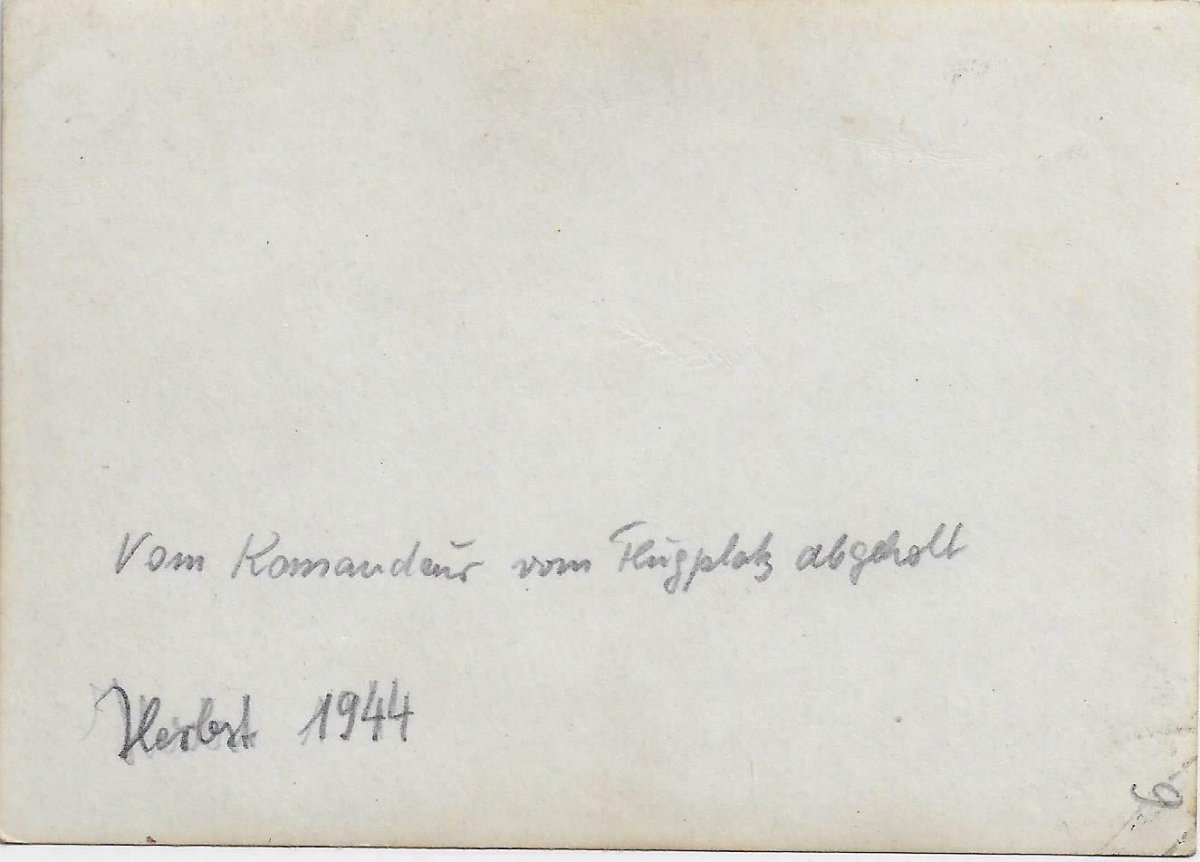 Vom Komandeur vom Flugplatz abgeholt
Herbst 1944